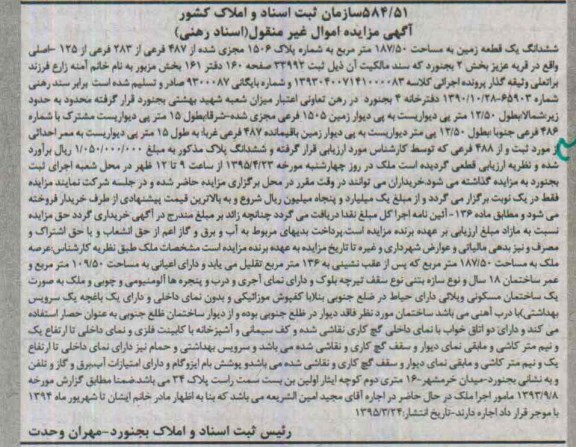 ۵۸۴/۵۱سازمان ثبت اسناد و املاک کشور
آگهی مزایده اموال غیر منقول(اسناد رهنی)
ششدانگ یک قطعه زمین به مساحت ۱۸۷/۵۰ متر مربع به شماره پلاک ۱۵۰۶ مجزی شده از ۴۸۷ فرعی از ۲۸۳ فرعی از ۱۲۵ -اصلی
واقع در قریه عزیز بخش ۲ بجنورد که سند مالکیت آن ذیل ثبت ۳۳۹۹۲ صفحه ۱۶۰ دفتر ۱۶۱ بخش مزبور به نام خانم آمنه زارع فرزند
براتعلی وثیقه گذار پرونده اجرائی کلاسه ۱۳۹۳۰۴۰۰۷۱۴۱۰۰۰۰۸۳ و شماره بایگانی ۹۳۰۰۰۸۷ صادر و تسلیم شده است برابر سند رهنی
شماره ۶۵۹۰۳-۱۳۹۰/۱۰/۲۸ دفترخانه ۴ بجنورد در رهن تعاونی اعتبار میزان شعبه شهید بهشتی بجنورد قرار گرفته محدود به حدود
زیر:شمالا:بطول ۱۲/۵۰ متر پی دیواریست به پی دیوار زمین ۱۵۰۵ فرعی مجزی شده-شرقا:بطول ۱۵ متر پی دیواریست مشترک با شماره
۴۸۶ فرعی جنوبا:بطول ۱۲/۵۰ پی متر دیواریست به پی دیوار زمین باقیمانده ۴۸۷ فرعی غربا: به طول ۱۵ متر پی دیواریست به ممر احداثی
مورد ثبت و از ۴۸۸ فرعی که توسط کارشناس مورد ارزیابی قرار گرفته و ششدانگ پلاک مذکور به مبلغ ۱/۰۵۰/۰۰۰/۰۰۰ ریال برآورد
شده و نظریه ارزیابی قطعی گردیده است ملک در روز چهارشنبه مورخه ۱۳۹۵/۴/۲۳ از ساعت ۹ تا ۱۲ ظهر در محل شعبه اجرای ثبت
بجنورد به مزایده گذاشته می شود.خریداران می توانند در وقت مقرر در محل برگزاری مزایده حاضر شده و در جلسه شرکت نمایند مزایده
فقط در یک نوبت برگزار می گردد و از مبلغ یک میلیارد و پنجاه میلیون ریال شروع و به بالاترین قیمت پیشنهادی از طرف خریدار فروخته
می شود و مطابق ماده ۱۳۶- آئین نامه اجرا کل مبلغ نقدا دریافت می گردد چنانچه زائد بر مبلغ مندرج در آگهی خریداری گردد حق مزایده
نسبت به مازاد مبلغ ارزیابی بر عهده برنده مزایده است.پرداخت بدیهای مربوط به آب و برق و گاز اعم از حق انشعاب و یا حق اشتراک و
مصرف و نیز بدهی مالیاتی و عوارض شهرداری و غیره تا تاریخ مزایده به عهده برنده مزایده است مشخصات ملک طبق نظریه کارشناس:عرصه
ملک به مساحت ۱۸۷/۵۰ متر مربع که پس از عقب نشینی به ۱۳۶ متر مربع تقلیل می یابد و دارای اعیانی به مساحت ۱۰۹/۵۰ متر مربع و
عمر ساختمان ۱۸ سال و نوع سازه بتنی نوع سقف تیرچه بلوک و دارای نمای آجری و درب و پنجره ها آلومنیومی و چوبی و ملک به صورت
یک ساختمان مسکونی ویلائی دارای حیاط در ضلع جنوبی بنا(با کفپوش موزائیکی و بدون نمای داخلی و دارای یک باغچه یک سرویس
بهداشتی)با درب آهنی می باشد ساختمان مورد نظر فاقد دیوار در ظلع جنوبی بوده و از دیوار ساختمان ظلع جنوبی به عنوان حصار استفاده
می کند و دارای: دو اتاق خواب با نمای داخلی گچ کاری نقاشی شده و کف سیمانی و آشپزخانه با کابینت فلزی و نمای داخلی تا ارتفاع یک
و نیم متر کاشی و مابقی نمای دیوار و سقف گچ کاری و نقاشی شده می باشد و سرویس بهداشتی و حمام نیز دارای نمای داخلی تا ارتفاع
یک و نیم متر کاشی و مابقی نمای دیوار و سقف گچ کاری و نقاشی شده می باشدو پوشش بام ایزوگام و دارای امتیازات آب،برق و گاز و تلفن
و به نشانی بجنورد-میدان خرمشهر-۱۶ متری دوم کوچه ایثار اولین بن بست سمت راست پلاک ۲۴ می باشد.ضمنا مطابق گزارش مورخه
۱۳۹۳/۹/۸ مامور اجرا ملک در حال حاضر در اجاره آقای مجید امین الشریعه می باشد که بنا به اظهار مادر خانم ایشان تا شهریور ماه ۱۳۹۴
با موجر قرار داد اجاره دارند-تاریخ انتشار:۱۳۹۵/۳/۲۴
رئیس ثبت اسناد و املاک بجنورد-مهران وحدت